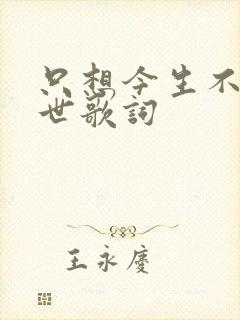 只想今生不
世歌詞
王永慶